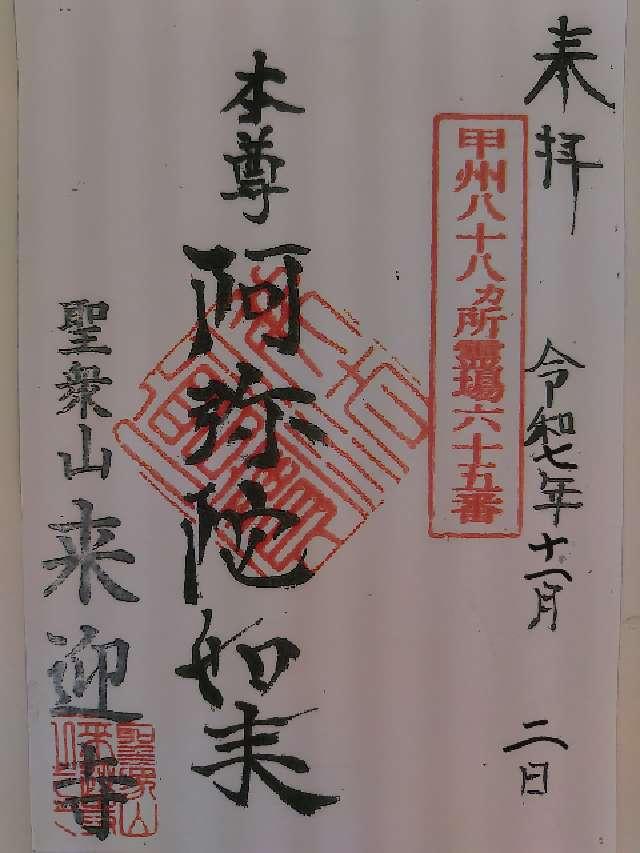 奉拝
令和七年十一月 二日
甲州八十八ヵ所霊場六十五番
本尊
阿弥陀如来
聖衆山 来迎寺